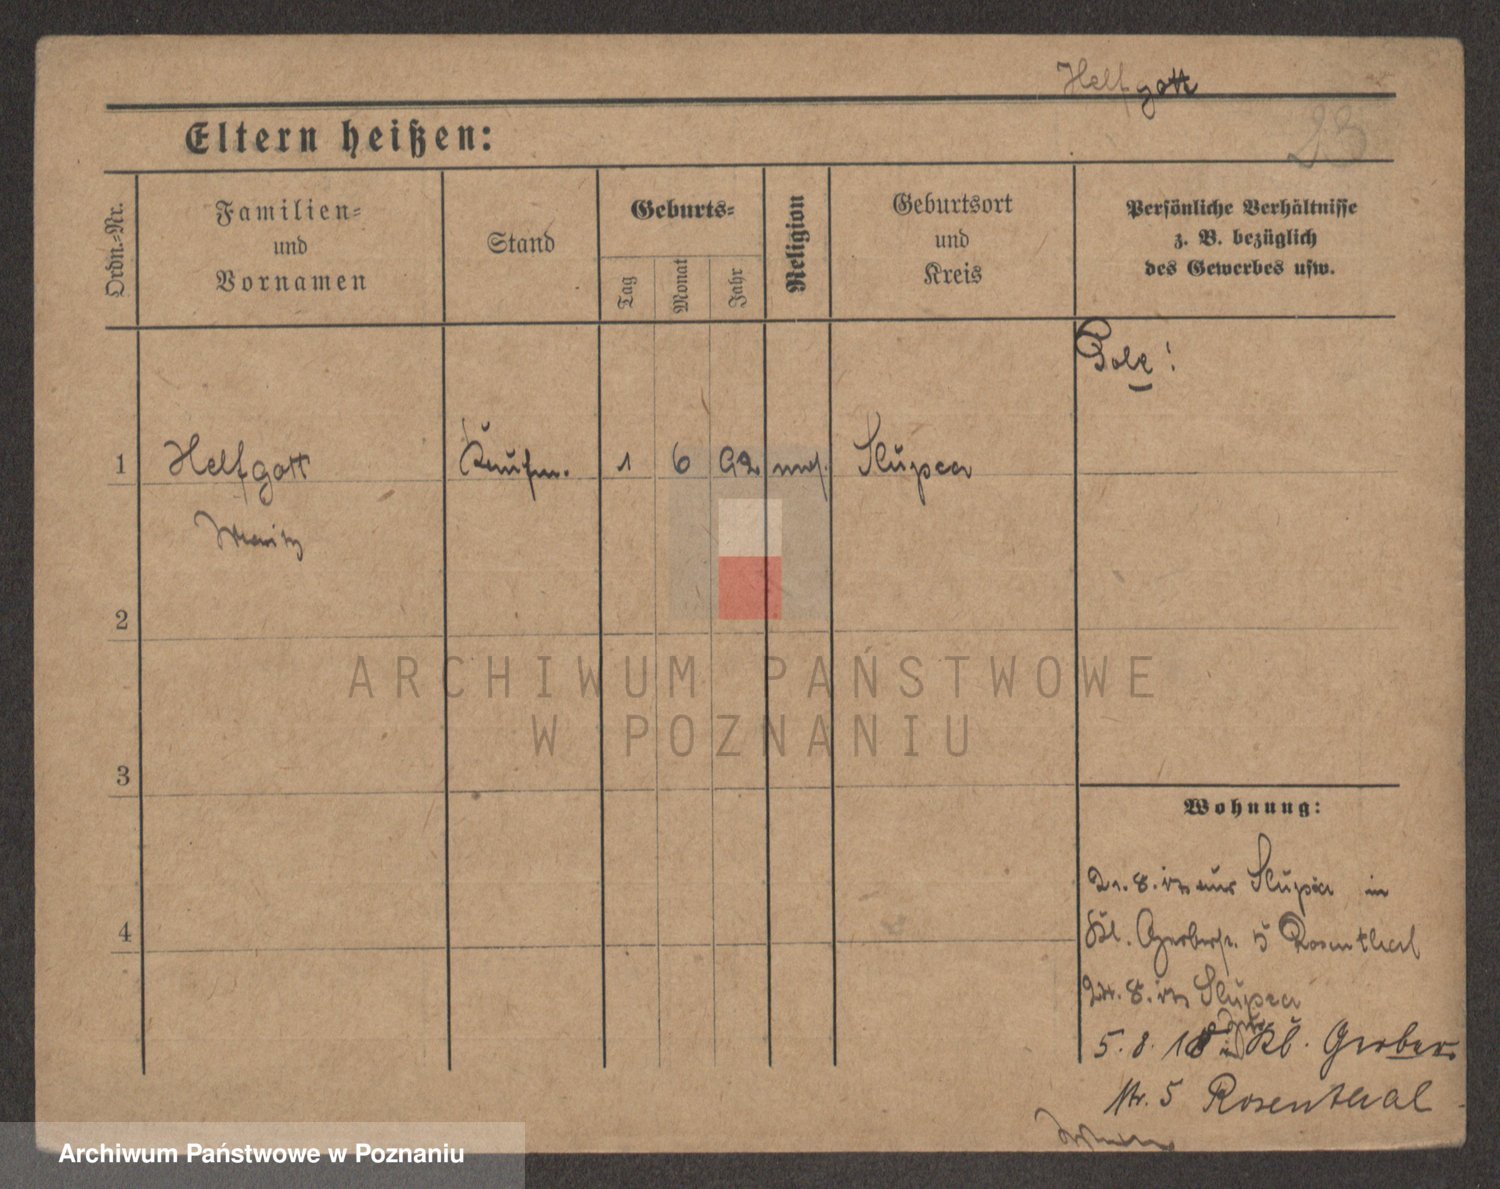 Helfgott
23
Eltern heißen:
Ordn.-Nr.
Familien-
und
Vornamen
Stand
Geburts-
Tag
Monat
Jahr
Religion
Geburtsort
und
Kreis
Persönliche Verhältnisse
z. B. bezüglich
des Gewerbes usw.
Pole!
1 Helfgott Kaufm. 1 6 92 mos. Slupca
Moritz
2
ARCHIWUM PAŃSTWOWE
W POZNANIU
3
Wohnung:
21. 8. 17 aus Slupca in
Kl. Gerberstr. 5 Rosenthal
24. 8. 17 Slupca
5. 8. 18 Kl. Gerber
str. 5 Rosenthal
4
Archiwum Państwowe w Poznaniu